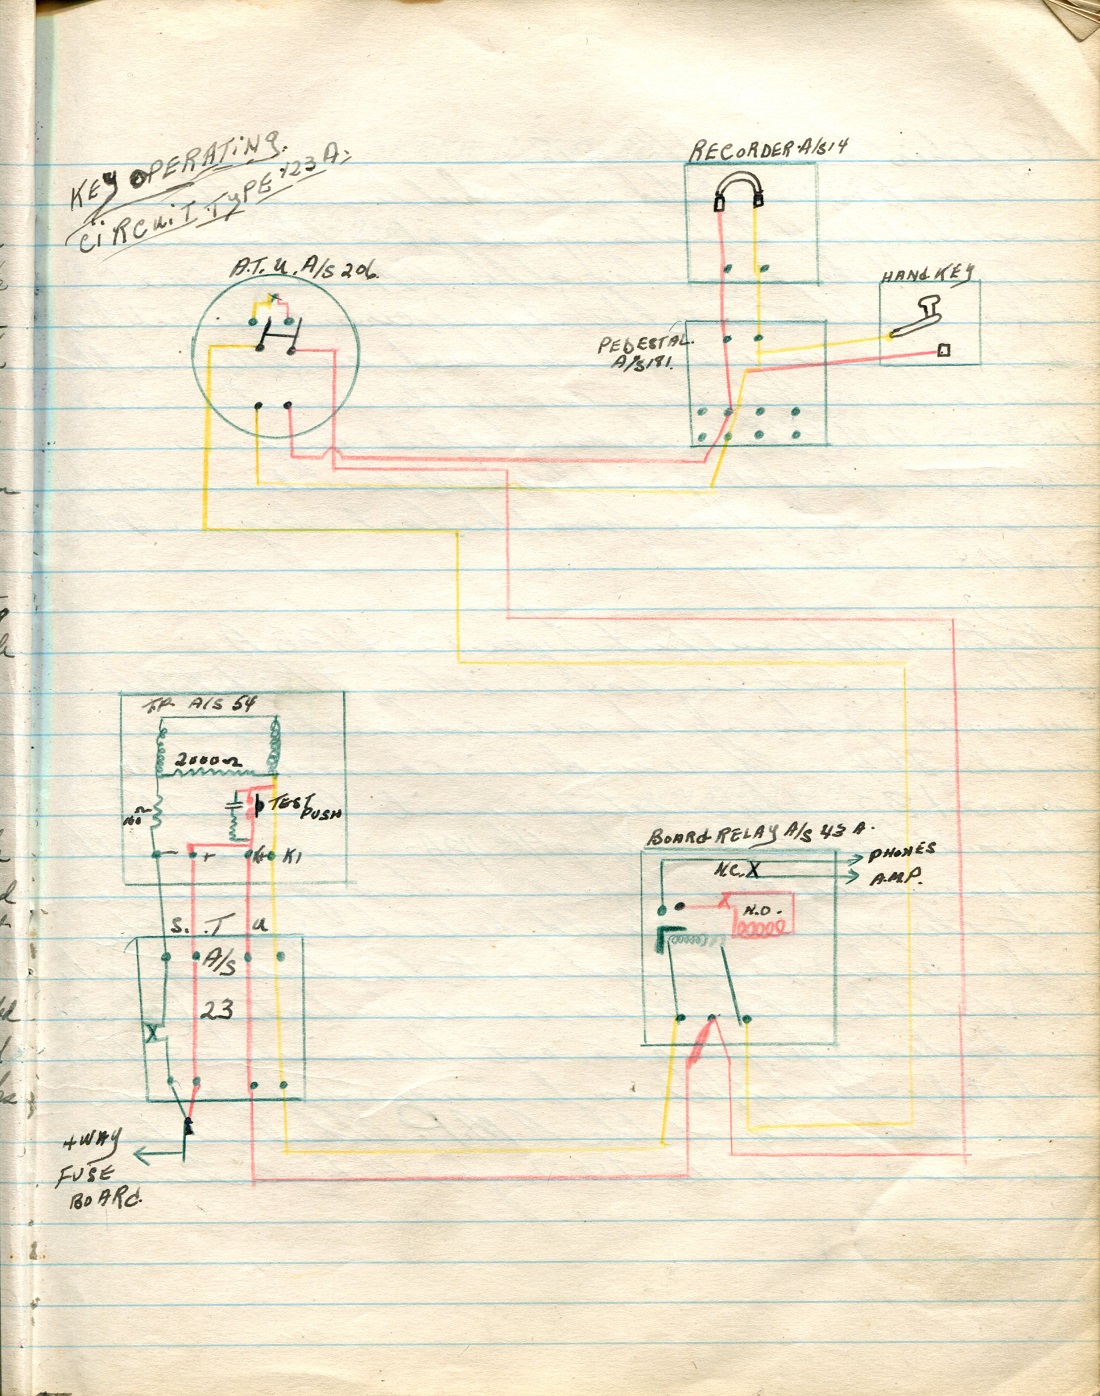 KEY OPERATING.
CIRCUIT TYPE 123A.
RECORDER A/S 14
A.T.U. A/S 206.
HAND KEY
PEDESTAL.
A/S 181.
T.P. A/S 54
2000Ω
TEST
PUSH
- + K K1
BOARD RELAY A/S 43 A.
N.C. X
PHONES
A.M.P.
X
N.O.
S. T U
A/S
23
X
4 WAY
FUSE
BOARD.